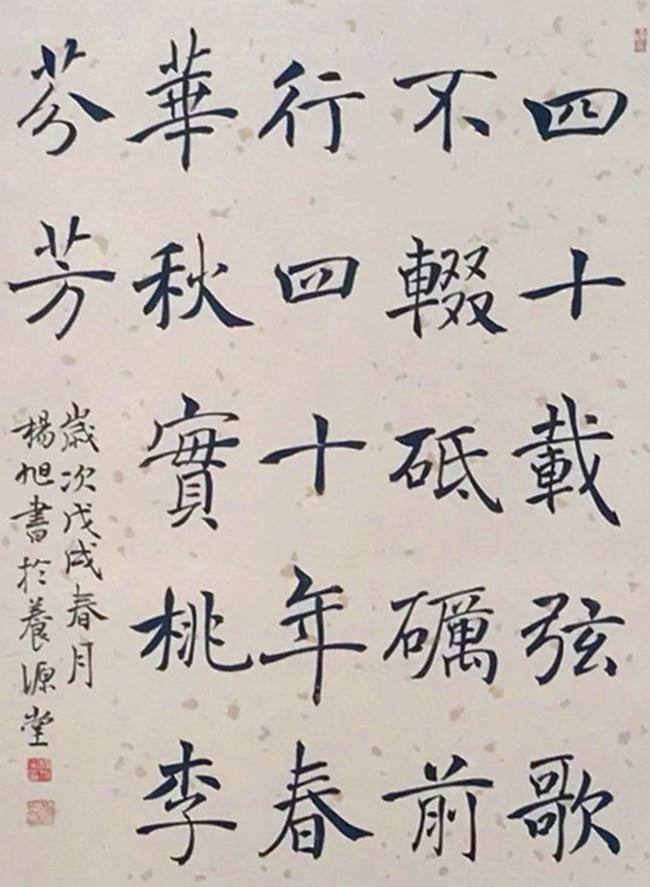 四十載弦歌
不輟砥礪前
行四十年春
華秋實桃李
芬芳
歲次戊戌春月
楊旭書於養源堂